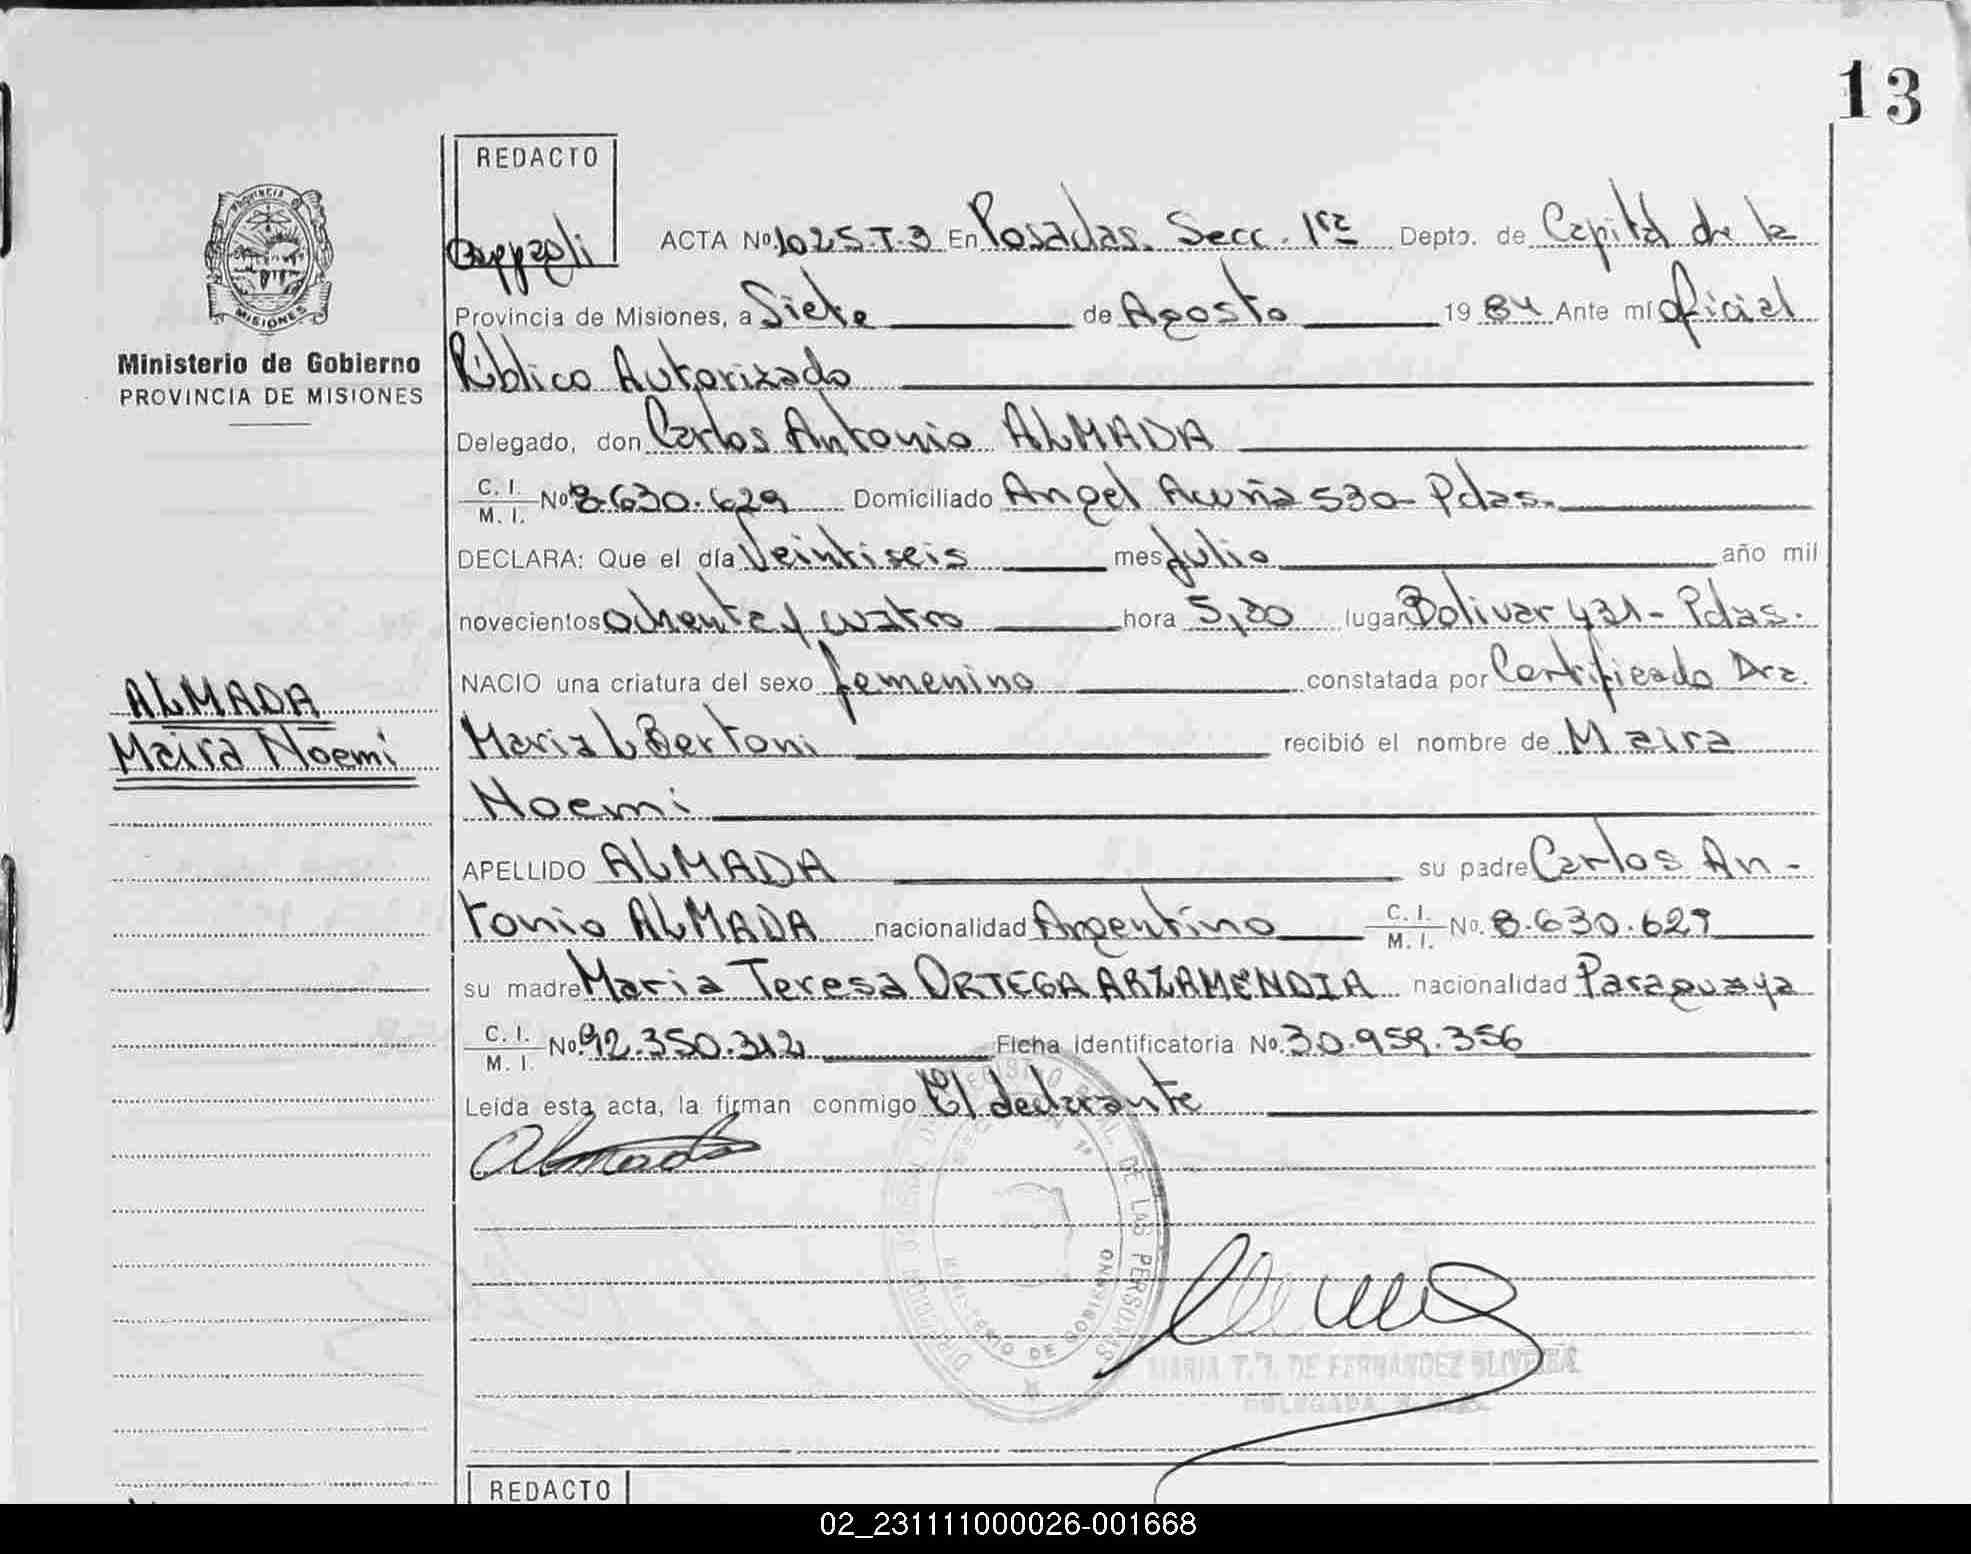 13
REDACTO
PROVINCIA DE
MISIONES
Ministerio de Gobierno
PROVINCIA DE MISIONES
ALMADA
Maira Noemi
ACTA Nº 1025-T-3 En Posadas. Secc. 1ra Depto. de Capital de la
Provincia de Misiones, a Siete de Agosto 1984 Ante mí Oficial
Público Autorizado
Delegado, don Carlos Antonio ALMADA
C. I. M. I. Nº 8.630.629 Domiciliado Angel Acuña 530- Pdas.
DECLARA: Que el día Veintiseis mes Julio año mil
novecientos ochenta y cuatro hora 5,30 lugar Bolivar 431- Pdas.
NACIO una criatura del sexo femenino constatada por Certificado Dra.
Maria L Bertoni recibió el nombre de Maira
Noemi
APELLIDO ALMADA su padre Carlos An-
tonio ALMADA nacionalidad Argentino C. I. M. I. Nº. 8.630.629
su madre Maria Teresa ORTEGA ARZAMENDIA nacionalidad Paraguaya
C. I. M. I. Nº. 92.350.312 Ficha Identificatoria Nº. 30.959.356
Leída esta acta, la firman conmigo El declarante
Almada
DE LAS PERSONAS
MINISTERIO DE GOBIERNO
MARIA T. DE FERNANDEZ OLIVEIRA
DELEGADA
REDACTO
02_231111000026-001668